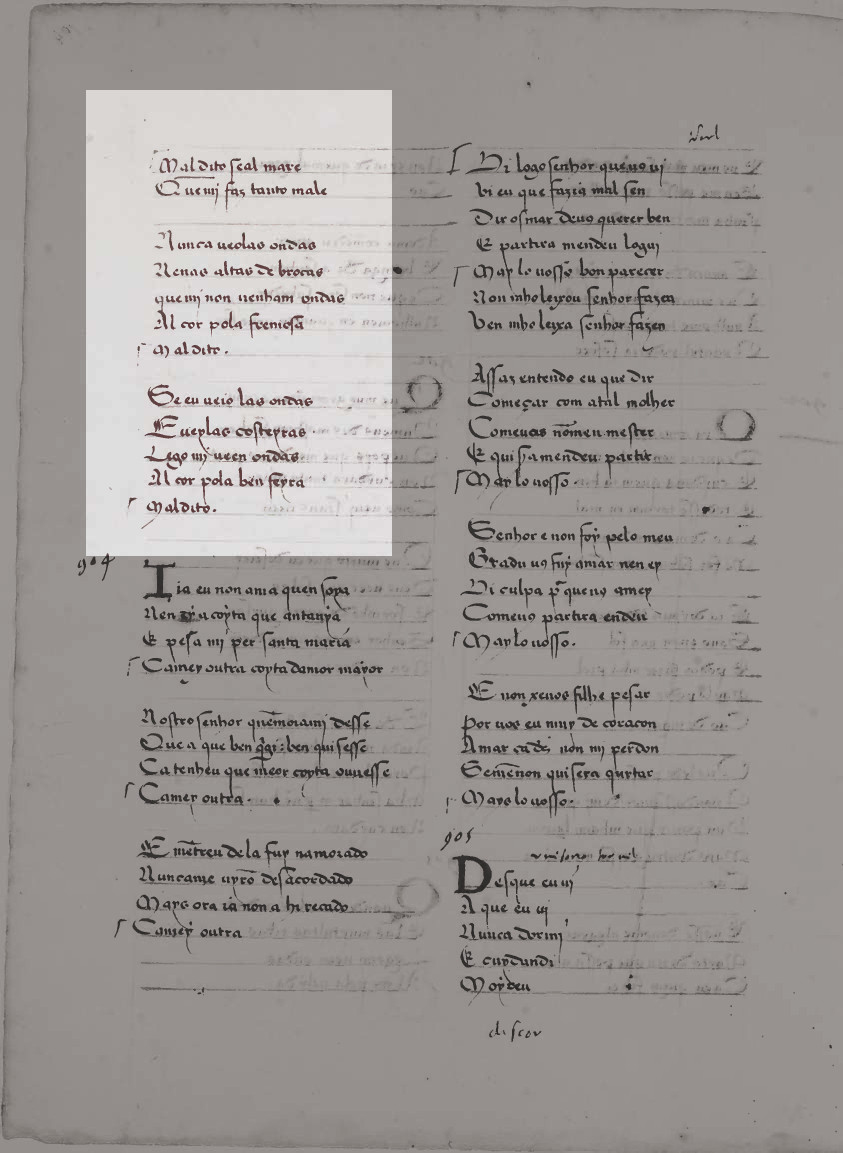 Maldito seal mare
Quemj faz tanto male
Nunca ueolas ondas
Nenas altas de brocas
quemj non uenham ondas
Al cor pola fremosã
Maldito.
Se eu ueio las ondas
E ueylas costeyras
Logo mj ueen ondas
Al cor pola ben feyra
Maldito.
904
Ia eu non auia quen soya
Nen a coyta que antauya
E pesa mj per santa maria
Camey outra coyta damor mayor
Nostro senhor quem
Que a que ben ben quisesse
Ca tenheu que coyta ouuesse
Camey outra.
E de la fuy namorado
Nuncame desacordado
Mays ora ia non a hi recado
Camey outra
Di logo senhor que uo uj
bi eu que fazia mal sen
Dir osmar deuos querer ben
E partira mendeu loguj
May lo uosso bon parecer
Non mho leixou senhor fazer
Ven mho leixa senhor fazen
Assaz entendo eu que dir
Começar com atal molher
Comeuos mester
E quisamendeu partir
May lo uosso.
Senhor e non foy pelo meu
Gradu uos fuy amar nen ey
Di culpa que uos amey
Comeuos partira endeu
May lo uosso.
E non xeuos filhe pesar
Por uos eu muy de coracon
Amar ca non mj perdon
quisera qurtar
Mays lo uosso.
905
Desque eu uj
A que eu uj
Nunca dormj
E cuydandi
Moyreu
discor